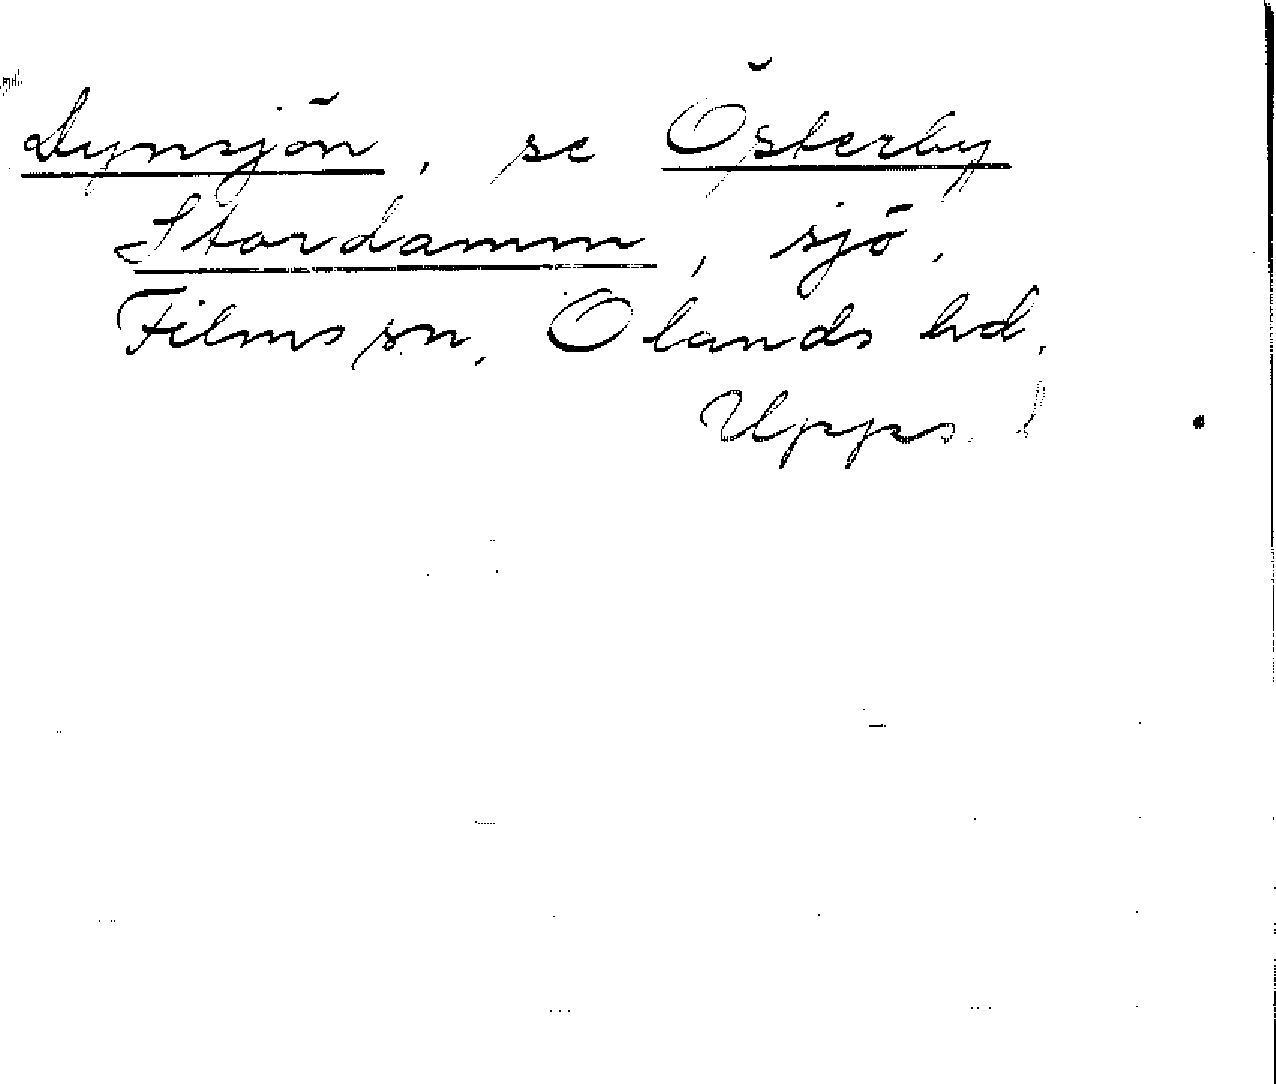 Dynsjön, se Österby
Stordamm, sjö,
Films sn, Olands hd,
Upps. l